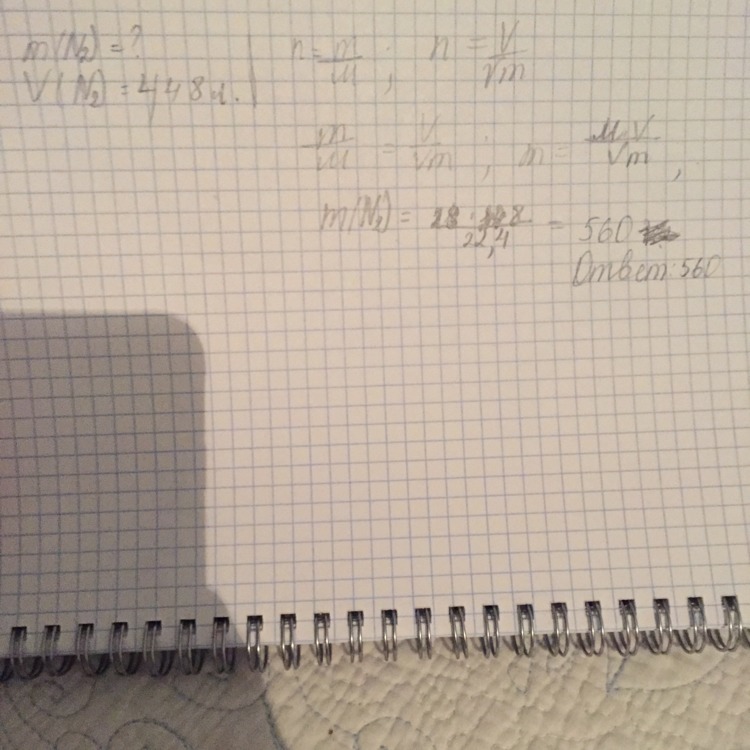 m(N₂) = ?
V(N₂) = 448л.
n = m/M ; n = V/Vm
m/M = V/Vm ; m = M·V/Vm ,
m(N₂) = 28·448/22,4 = 560
Ответ: 560